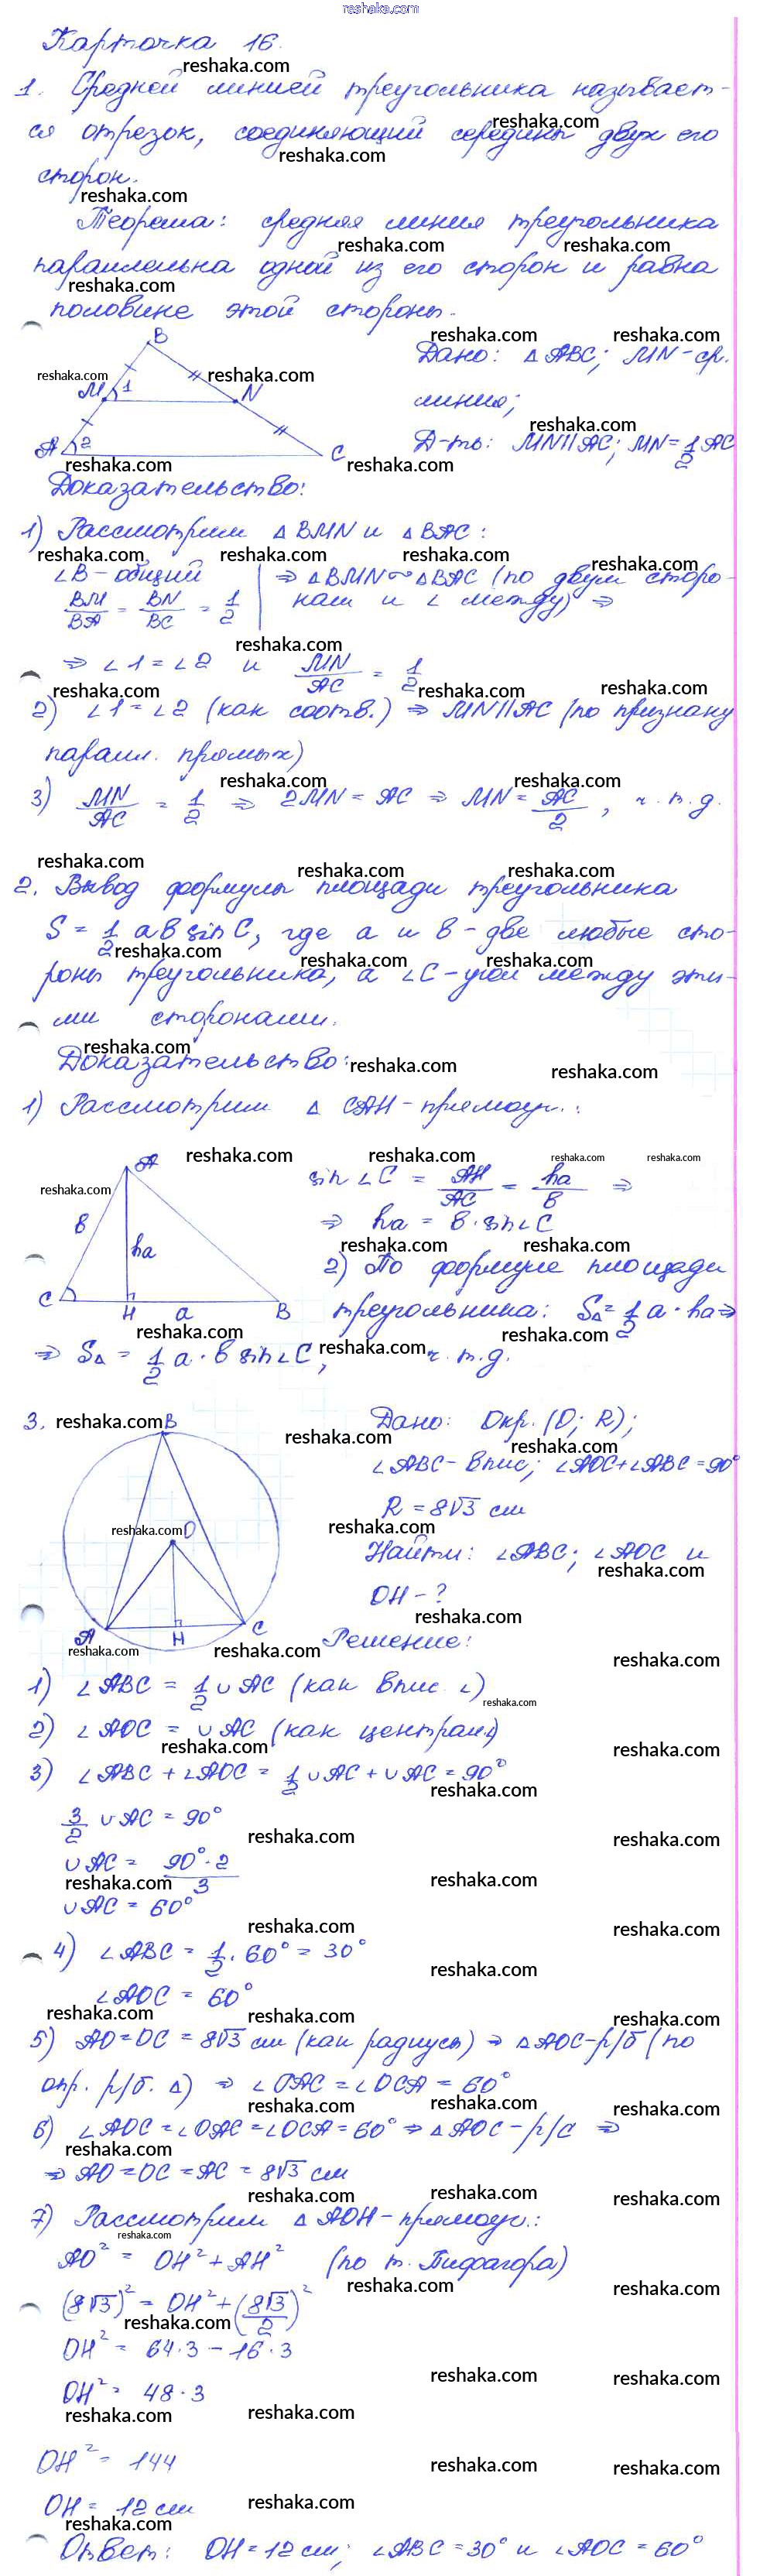 reshaka.com
Карточка 16.
1. Средней линией треугольника называет-
ся отрезок, соединяющий середины двух его
сторон.
Теорема: средняя линия треугольника
параллельна одной из его сторон и равна
половине этой стороны.
B
M 1 N
A 2 C
Дано: △ABC; MN - ср.
линия;
Д-ть: MN||AC; MN = 1/2 AC
Доказательство:
1) Рассмотрим △BMN и △BAC:
∠B - общий
BM/BA = BN/BC = 1/2
⇒ △BMN ∾ △BAC (по двум сторо-
нам и ∠ между) ⇒
⇒ ∠1 = ∠2 и MN/AC = 1/2
2) ∠1 = ∠2 (как соотв.) ⇒ MN||AC (по признаку
паралл. прямых)
3) MN/AC = 1/2 ⇒ 2MN = AC ⇒ MN = AC/2, ч.т.д.
2. Вывод формулы площади треугольника
S = 1/2 ab sin C, где a и b - две любые сто-
роны треугольника, а ∠C - угол между эти-
ми сторонами.
Доказательство:
1) Рассмотрим △ CAH - прямоуг.:
A
b ha
C H a B
sin ∠C = AH/AC = ha/b ⇒
⇒ ha = b·sin∠C
2) По формуле площади
треугольника: S△ = 1/2 a·ha ⇒
⇒ S△ = 1/2 a·b sin∠C, ч.т.д.
3.
B
O
A H C
Дано: Окр. (O; R);
∠ABC - впис; ∠AOC + ∠ABC = 90°
R = 8√3 см
Найти: ∠ABC; ∠AOC и
OH - ?
Решение:
1) ∠ABC = 1/2 ∪AC (как впис. ∠)
2) ∠AOC = ∪AC (как централ ∠)
3) ∠ABC + ∠AOC = 1/2 ∪AC + ∪AC = 90°
3/2 ∪AC = 90°
∪AC = 90°·2/3
∪AC = 60°
4) ∠ABC = 1/2 · 60° = 30°
∠AOC = 60°
5) AO = OC = 8√3 см (как радиусы) ⇒ △AOC - р/б (по
опр. р/б. △) ⇒ ∠OAC = ∠OCA = 60°
6) ∠AOC = ∠OAC = ∠OCA = 60° ⇒ △AOC - р/с ⇒
⇒ AO = OC = AC = 8√3 см
7) Рассмотрим △AOH - прямоуг.:
AO² = OH² + AH² (по т. Пифагора)
(8√3)² = OH² + (8√3/2)²
OH² = 64·3 - 16·3
OH² = 48·3
OH² = 144
OH = 12 см
Ответ: OH = 12 см; ∠ABC = 30° и ∠AOC = 60°